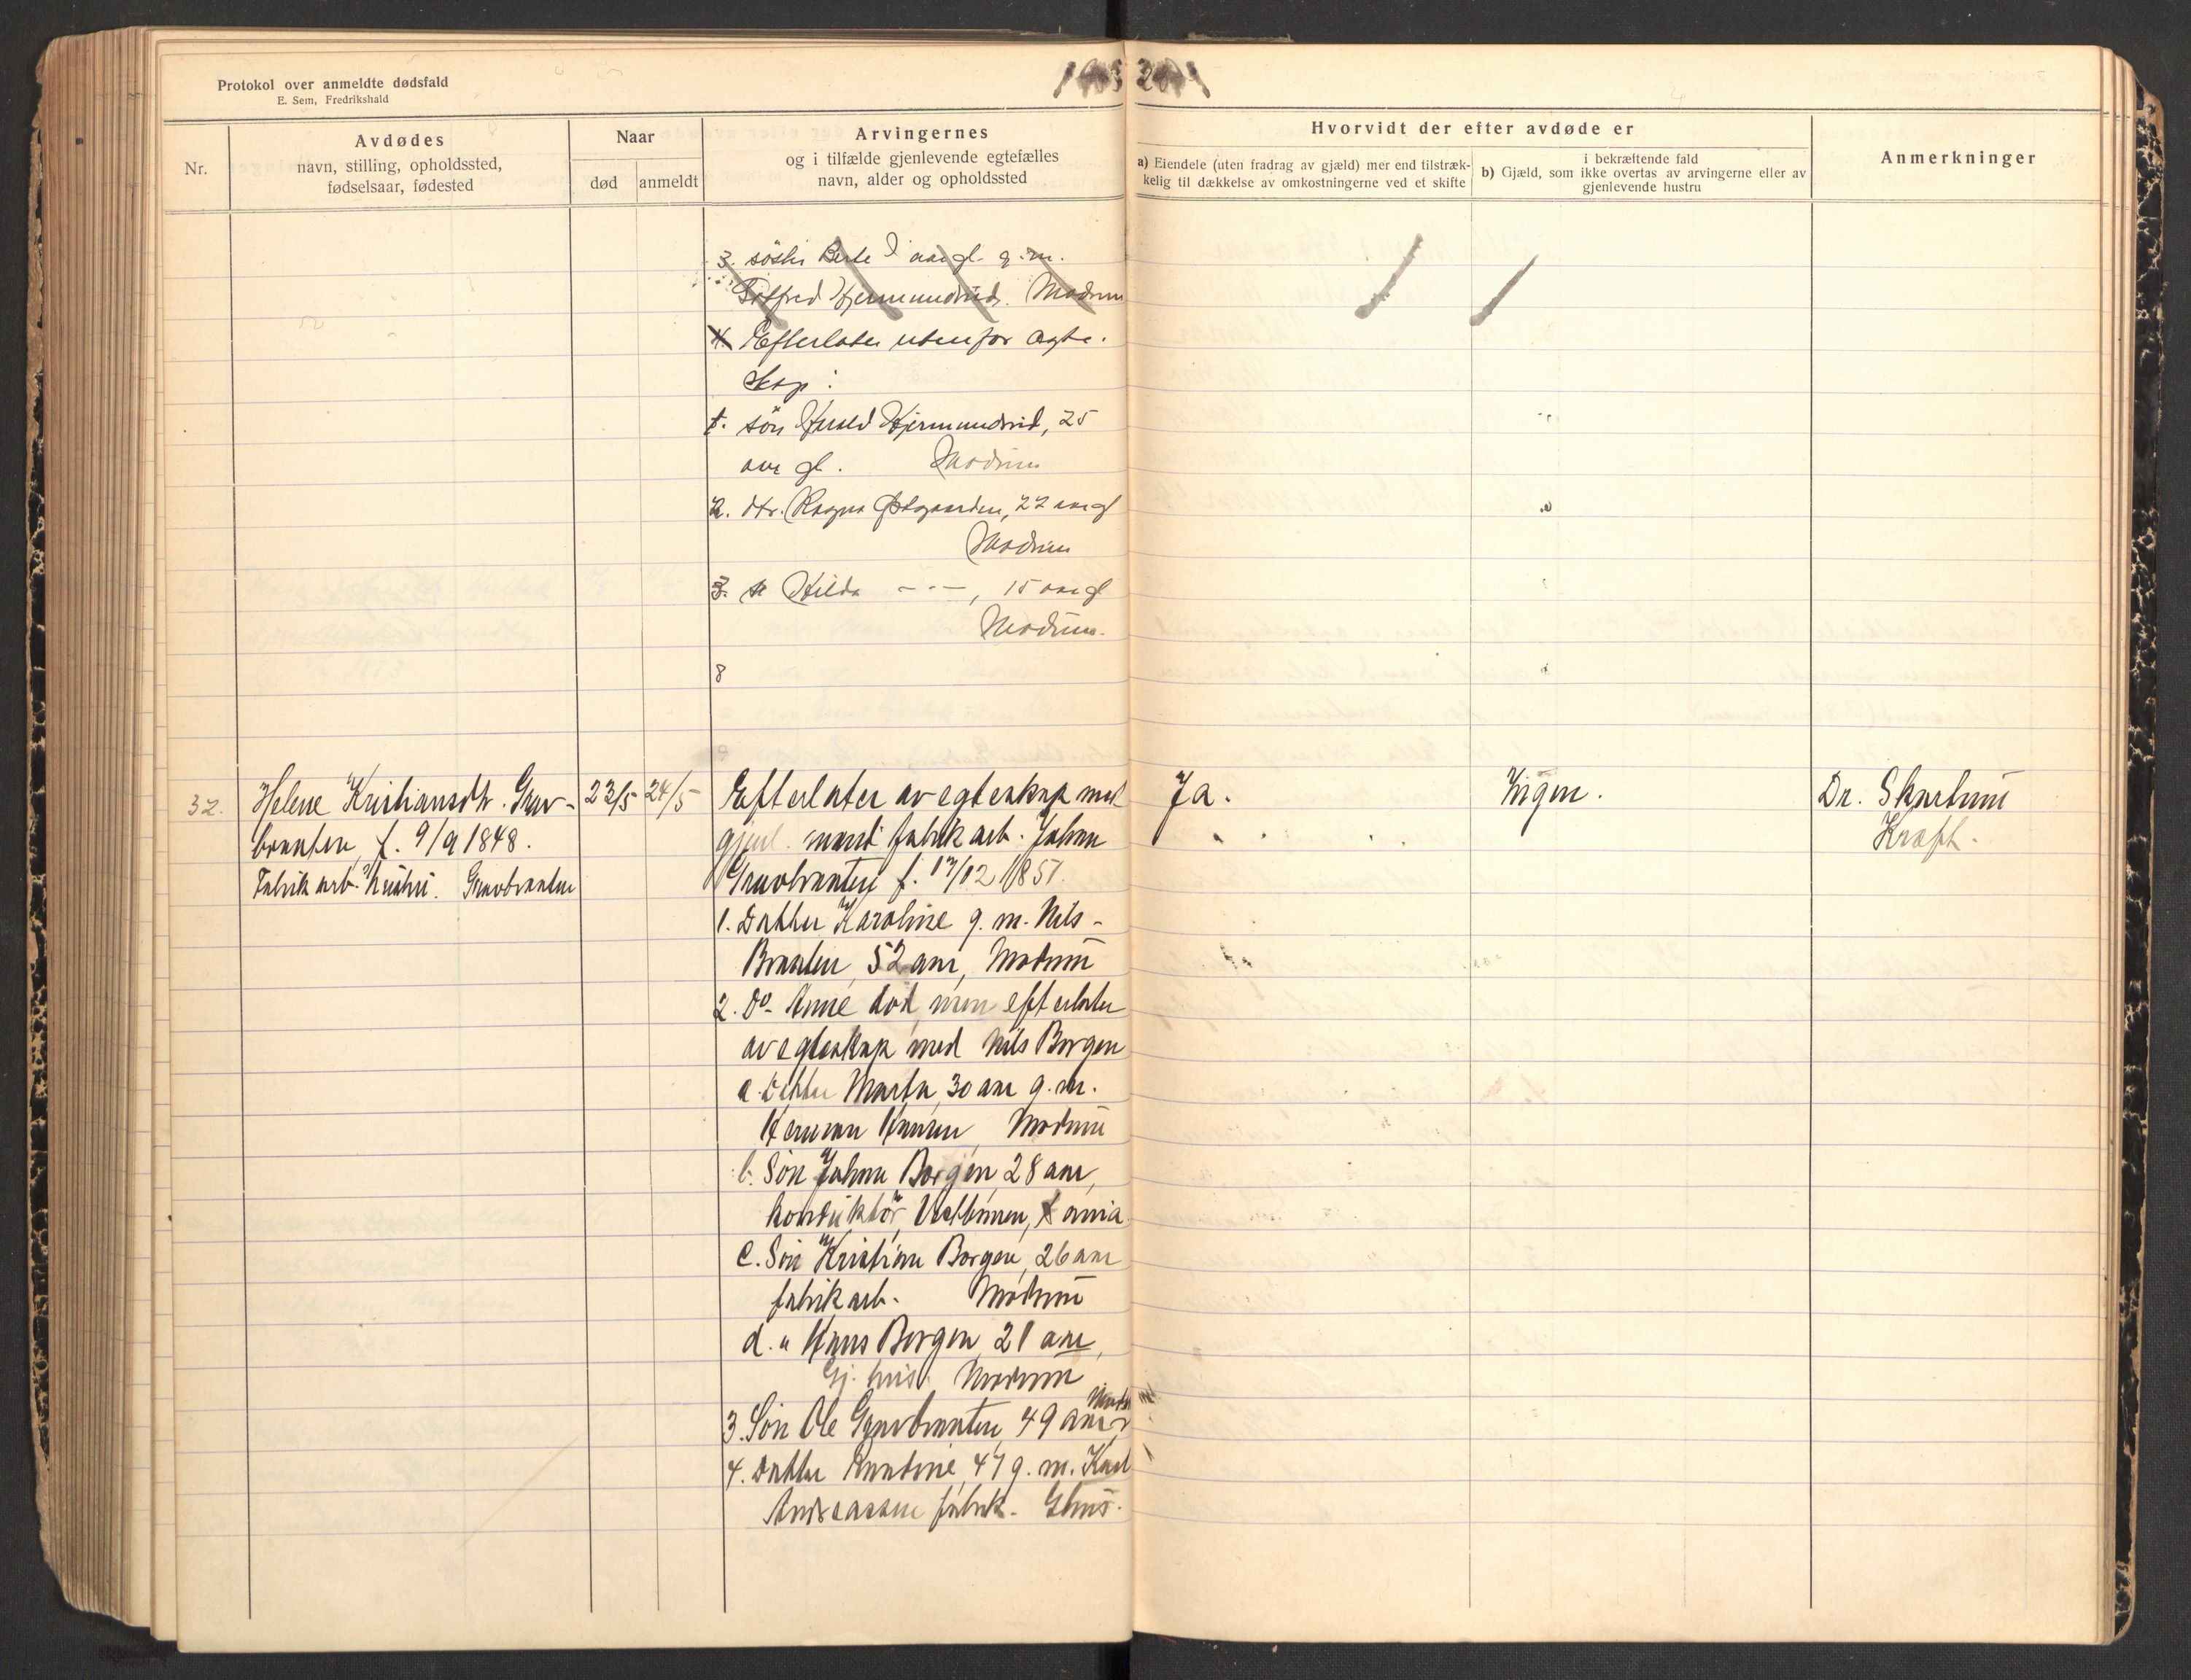 Protokol over anmeldte dødsfald
E. Sem, Fredrikshald
Nr.
Avdødes
navn, stilling, opholdssted,
fødselsaar, fødested
Naar
død
anmeldt
Arvingernes
og i tilfælde gjenlevende egtefælles
navn, alder og opholdssted
Hvorvidt der efter avdøde er
a) Eiendele (uten fradrag av gjæld) mer end tilstræk-
kelig til dækkelse av omkostningerne ved et skifte
i bekræftende fald
b) Gjæld, som ikke overtas av arvingerne eller av
gjenlevende hustru
Anmerkninger
3. søster Berte ? aar gl. g.m.
Hjermundrud. Modum
4. Efterlater utenfor ægte-
skap:
1. søn Hjermundrud, 25
aar gl. Modum
2. dtr. Ragna Østgaarden, 22 aar gl
Modum
3. " Hilda - - -, 15 aar gl
Modum.
8
9
32.
Helene Kristiansdtr. Grav-
braaten, f. 9/9 1848.
Fabrikarb. hustru. Gravbraaten
23/5
24/5
Efterlater av egteskap med
gjenl. mand fabrikarb. Johan
Gravbraaten f. 17/12 1851.
1. Datter Karoline g. m. Nils
Braaten, 52 aar, Modum
2. Do. Anne død, men efterlater
av egteskap med Nils Borgen
a. Datter Marta, 30 aar g. m.
Herman Hansen, Modum
b. Søn Johan Borgen, 28 aar,
konduktør, Vestbanen, Kr.ania.
c. Søn Kristian Borgen, 26 aar
fabrikarb. Modum
d. " Hans Borgen, 21 aar,
Gj. hus. Modum
3. Søn Ole Gravbraaten, 49 aar, Modum
4. Datter 47 g. m. Karl
Andreassen fabrik. Ghus.
Ja.
Ingen.
Dr. Skartum
Kraft.